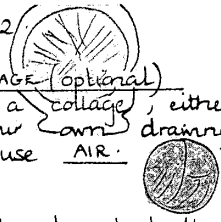 2
AGE (optional)
a collage, eithe
own drawing
use AIR.